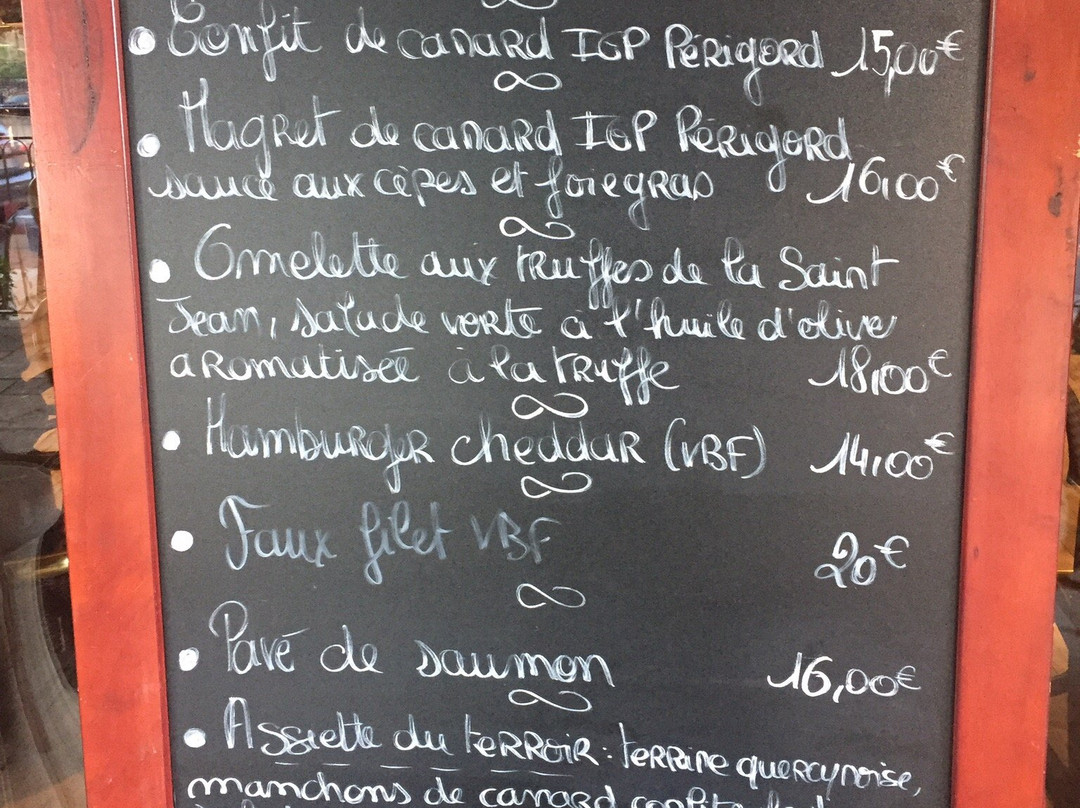 • Confit de canard IGP Périgord 15,00€
• Magret de canard IGP Périgord
sauce aux cèpes et foie gras 16,00€
• Omelette aux truffes de la Saint
Jean, salade verte à l'huile d'olive
aromatisée à la truffe 18,00€
• Hamburger cheddar (VBF) 14,00€
• Faux filet VBF 20€
• Pavé de saumon 16,00€
• Assiette du terroir : terrine quercynoise,
manchons de canard confits